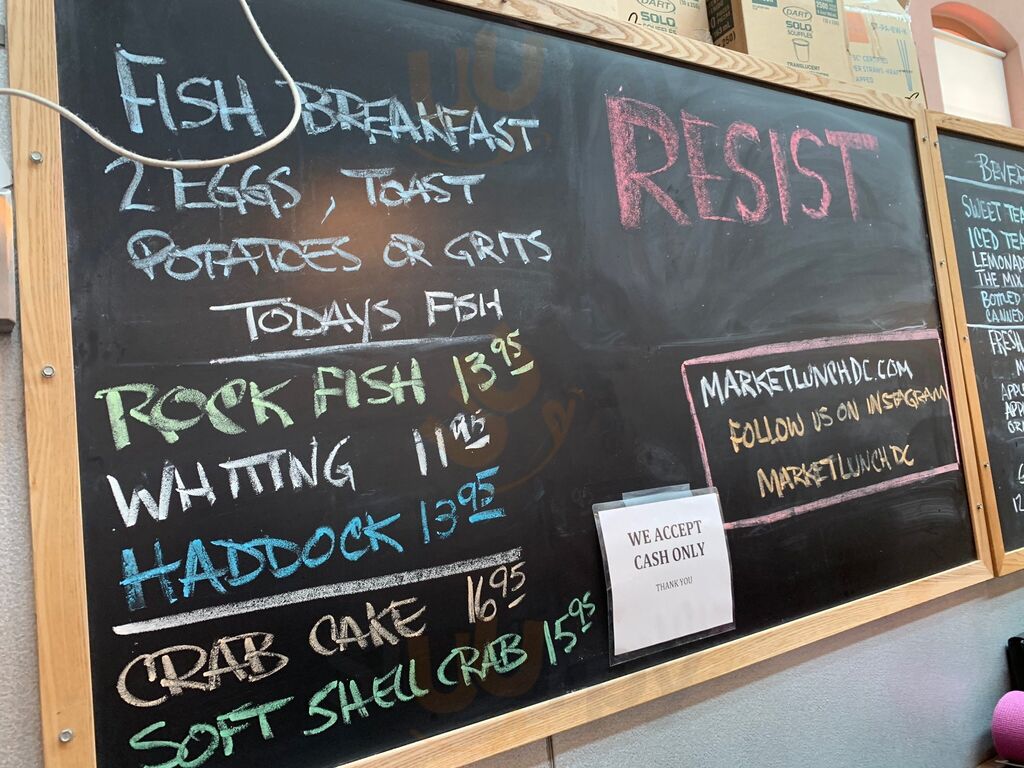 FISH BREAKFAST
2 EGGS, TOAST
POTATOES OR GRITS
TODAYS FISH
ROCK FISH 13.95
WHITING 11.95
HADDOCK 13.95
CRAB CAKE 16.95
SOFT SHELL CRAB 15.95
RESIST
MARKETLUNCHDC.COM
FOLLOW US ON INSTAGRAM
MARKETLUNCHDC
WE ACCEPT
CASH ONLY
THANK YOU
SWEET TEA
ICED TEA
LEMONADE
THE MIX
BOTTLED
CANNED
DART
SOLO
SOUFFLES
TRANSLUCENT
DART
SOLO